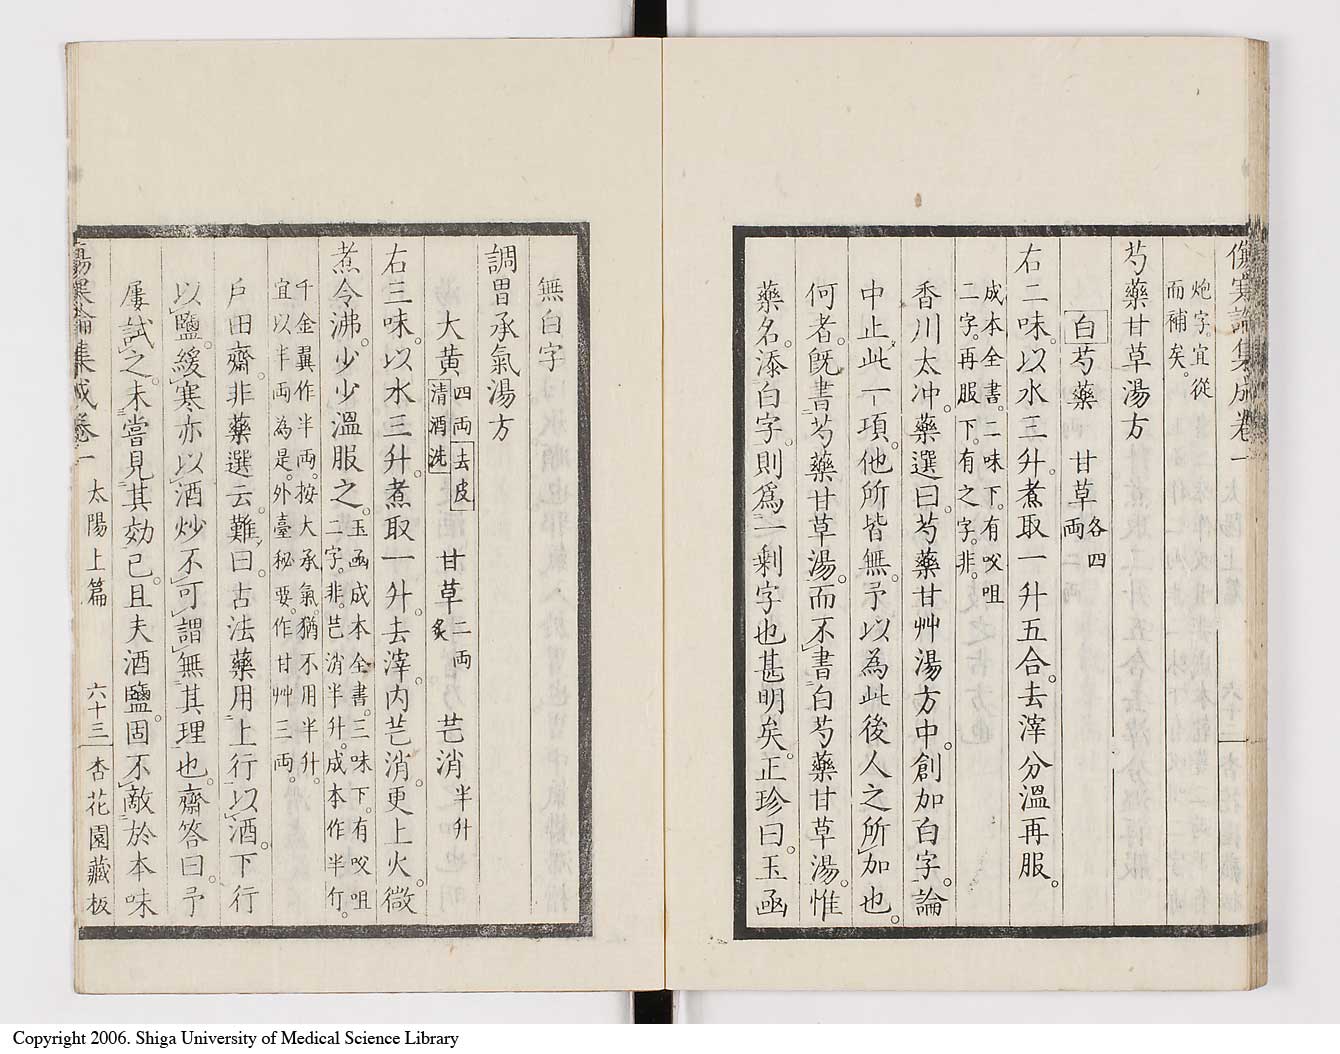 傷寒論集成卷一
炮字。宜從
而補矣。
芍藥甘草湯方
白芍藥 甘草各四兩
右二味。以水三升。煮取一升五合。去滓分溫再服。
成本全書。二味下。有㕮咀
二字。再服下。有之字。非。
香川太冲。藥選曰。芍藥甘艸湯方中。創加白字。論
中止此一項。他所皆無。予以為此後人之所加也。
何者。既書芍藥甘草湯。而不書白芍藥甘草湯。惟
藥名。添白字。則爲一剩字也甚明矣。正珍曰。玉函
無白字
調胃承氣湯方
大黄四兩去皮清酒洗 甘草二兩炙 芒消半升
右三味。以水三升。煮取一升。去滓。内芒消。更上火。微
煮令沸。少少溫服之。玉函成本全書。三味下。有㕮咀
二字。非。芒消半升。成本作半斤。
千金翼作半兩。按大承氣。猶不用半升。
宜以半両為是。外臺秘要。作甘艸三兩。
戶田齋。非藥選云。難曰。古法藥用上行。以酒。下行
以鹽。緩寒亦以酒炒。不可謂無其理也。齋答曰。予
屢試之。未嘗見其効已。且夫酒鹽。固不敵於本味
傷寒論集成卷一 太陽上篇 六十三 杏花園藏板
Copyright 2006. Shiga University of Medical Science Library